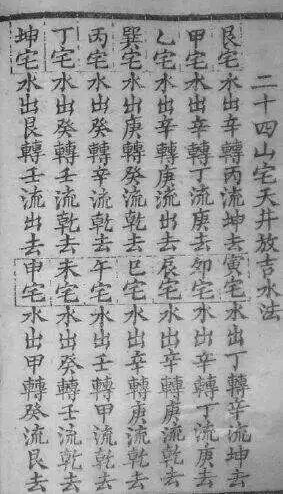 二十四山宅天井放吉水法
艮宅水出辛轉丙流坤去寅宅水出丁轉辛流坤去
甲宅水出辛轉丁流庚去卯宅水出辛轉丁流庚去
乙宅水出辛轉庚流出去辰宅水出辛轉庚流乾去
巽宅水出庚轉癸流乾去巳宅水出辛轉庚流乾去
丙宅水出癸轉辛流乾去午宅水出壬轉甲流乾去
丁宅水出癸轉壬流乾去未宅水出癸轉壬流乾去
坤宅水出艮轉壬流出去申宅水出甲轉癸流艮去